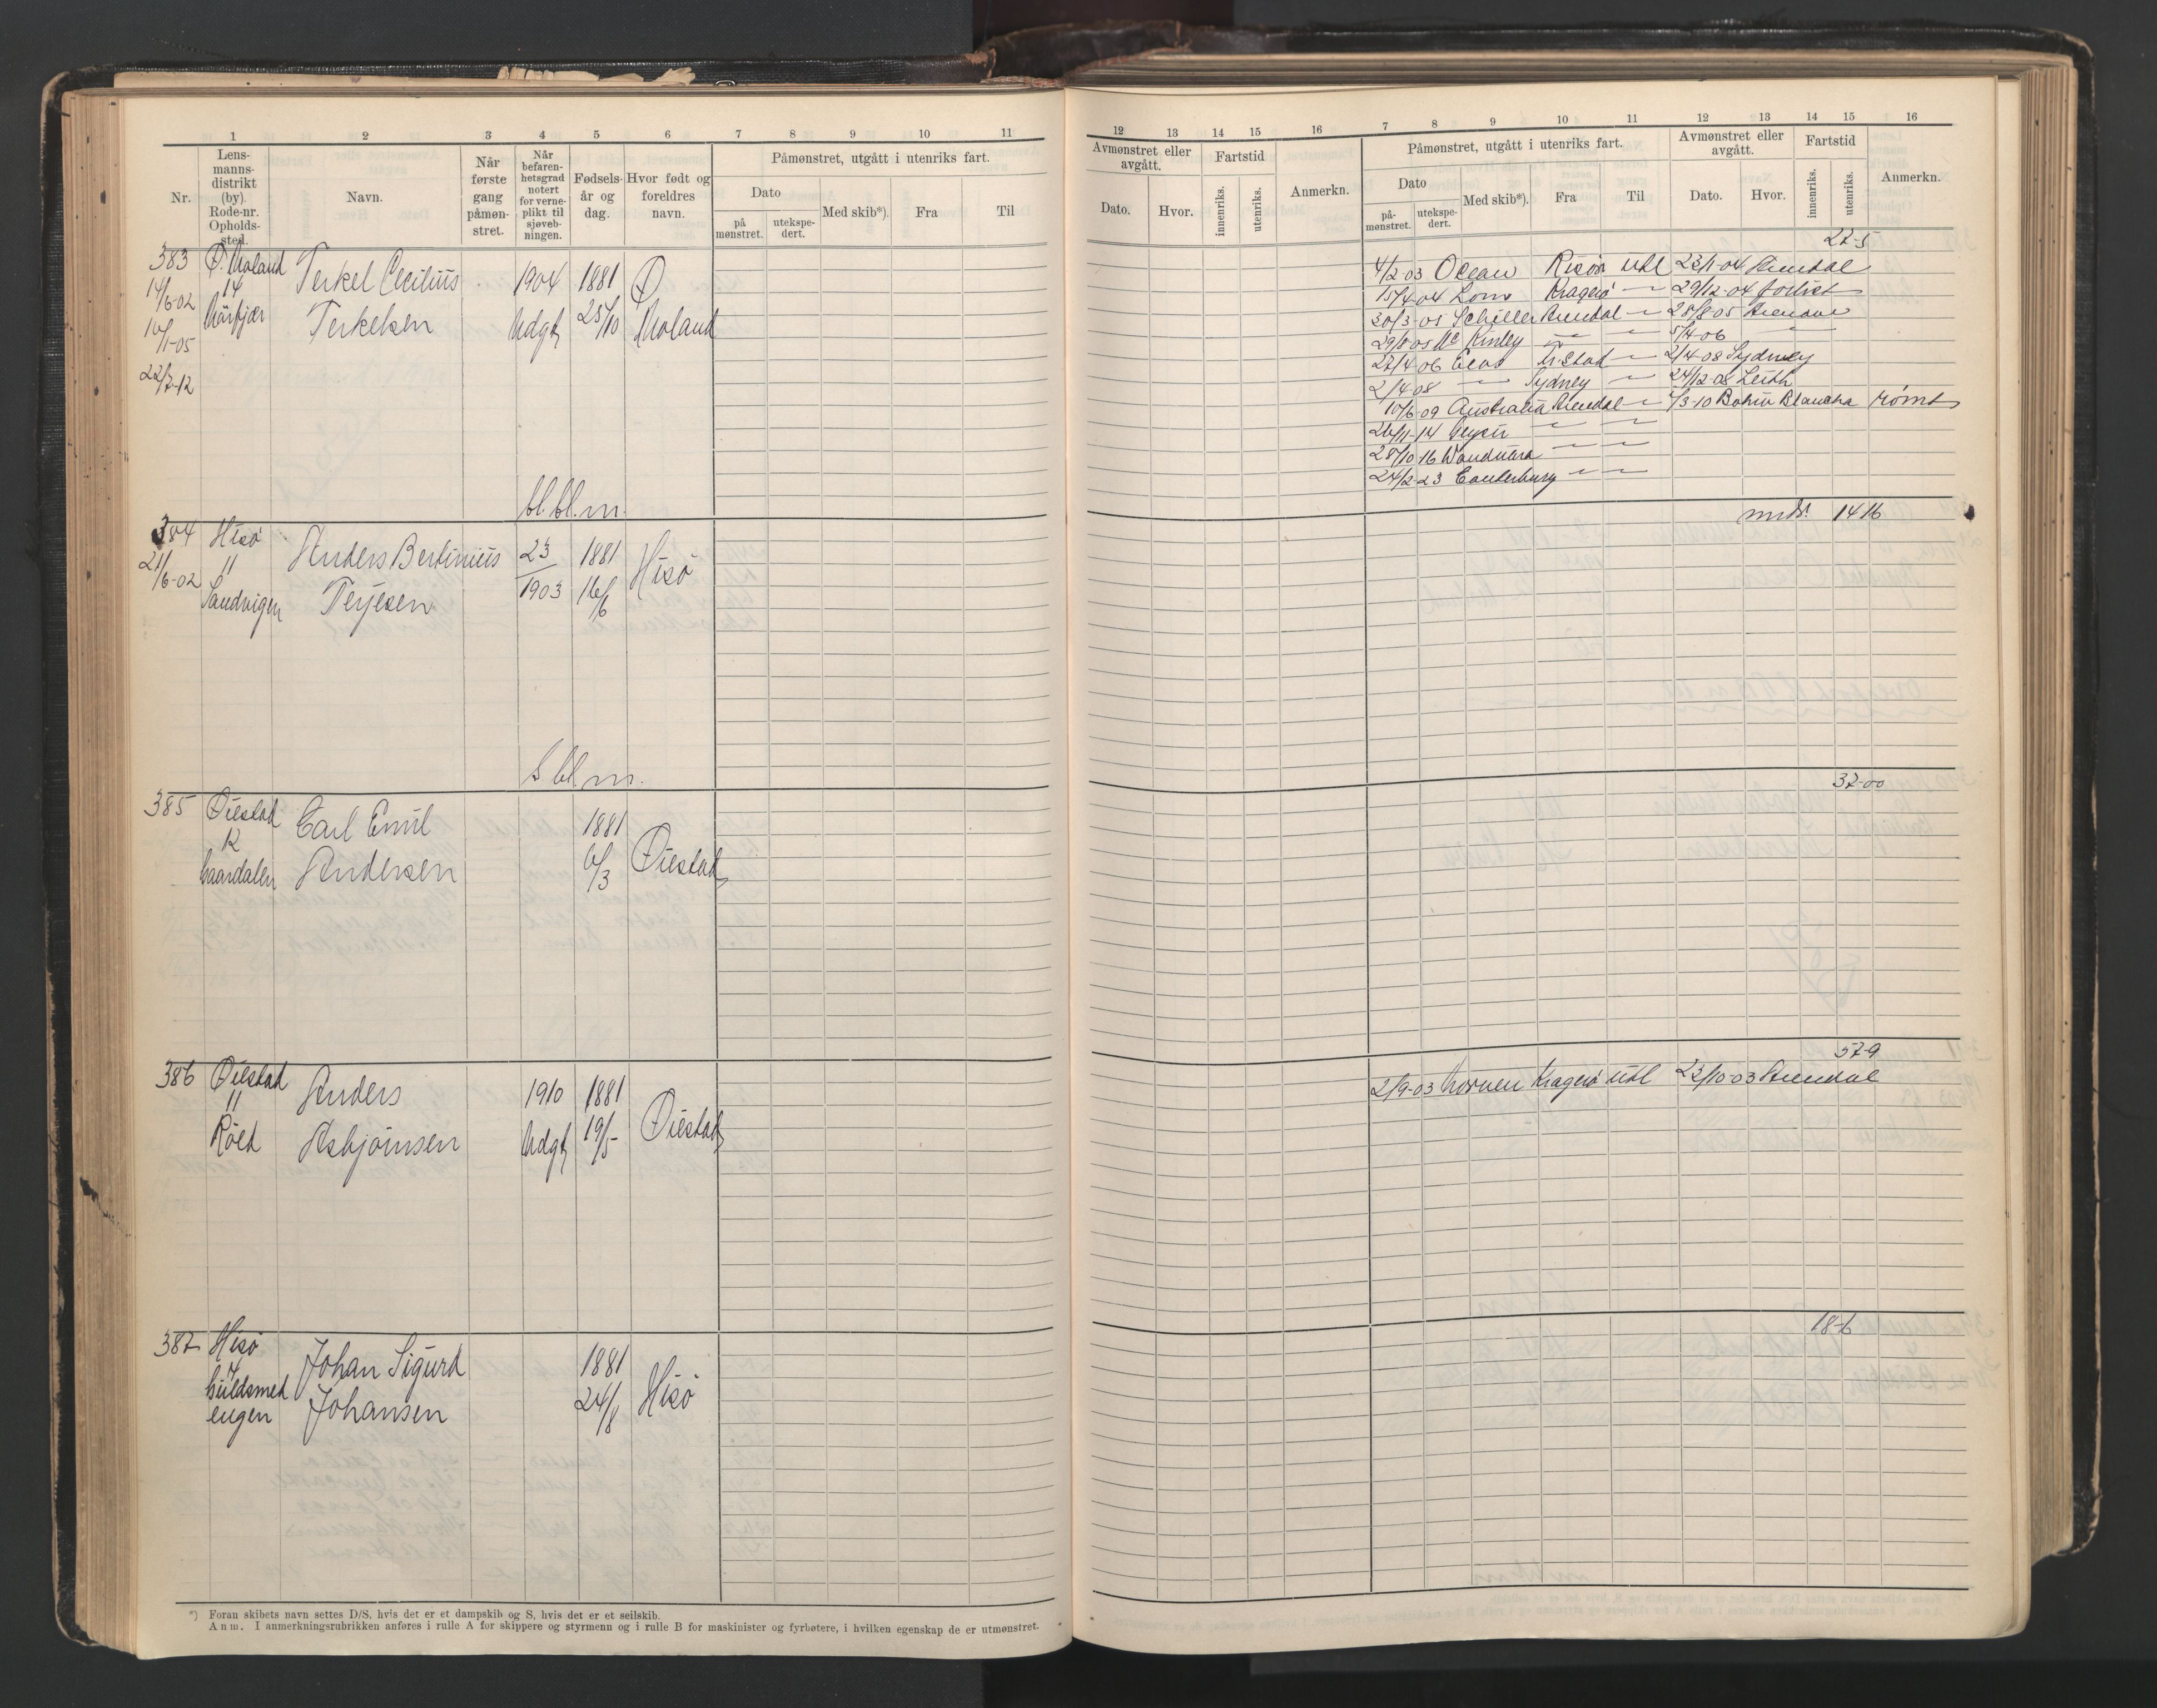 1 2 3 4 5 6 7 8 9 10 11
Nr.
Lens-
manns-
distrikt
(by).
Rode-nr.
Opholds-
sted.
Navn.
Når
første
gang
påmøn-
stret.
Når
befaren-
hetsgrad
notert
for verne-
plikt til
sjøveb-
ningen.
Fødsels-
år og
dag.
Hvor født og
foreldres
navn.
Påmønstret, utgått i utenriks fart.
Dato
på
mønstret.
utekspe-
dert.
Med skib*).
Fra
Til
383
14/6-02
10/1-05
22/7-12
Ø. Moland
14
Terkel Cecilius
Terkelsen
1904
Udgt
1881
25/10
Ø
Moland
bl.bl.m.
384
21/6-02
Hisø
11
Sandvigen
Anders Bertinius
Terjesen
23
1903
1881
16/6
Hisø
s.bl.m.
385
Øiestad
12
Gaardalen
Carl Emil
Andersen
1881
6/3
Øiestad
386
Øiestad
11
Røed
Anders
Asbjørnsen
1910
Udgt
1881
19/5
Øiestad
387
Hisø
4
Guldsmed
engen
Johan Sigurd
Johansen
1881
24/8
Hisø
*) Foran skibets navn settes D/S, hvis det er et dampskib og S, hvis det er et seilskib.
Anm. I anmerkningsrubrikken anføres i rulle A for skippere og styrmenn og i rulle B for maskinister og fyrbøtere, i hvilken egenskap de er utmønstret.
12 13 14 15 16 7 8 9 10 11 12 13 14 15 16
Avmønstret eller
avgått.
Dato.
Hvor.
Fartstid
innenriks.
utenriks.
Anmerkn.
Påmønstret, utgått i utenriks fart.
Dato
på-
mønstret.
utekspe-
dert.
Med skib*).
Fra
Til
Avmønstret eller
avgått.
Dato.
Hvor.
Fartstid
innenriks.
utenriks.
Anmerkn.
27-5
4/2-03 Ocean Risør Udl 23/1-04 Arendal
15/4-04 Lom Kragerø — 29/12-04 forlist
30/3-05 Schiller Arendal — 28/8-05 Arendal
29/8-05 Mc Kinley — — 5/4-06 —
27/4-06 — 2/4-08 Sydney
2/4-08 — Sydney — 24/12-08 Leith
10/6-09 Australia Arendal — 1/3-10 Bahia Blanca rømt
26/11-14 — —
28/10-16 — —
24/2-23 Canterbury — —
mds. 14 16
37-00
57-9
2/9-03 Norven Kragerø Udl 23/10-03 Arendal
18-6